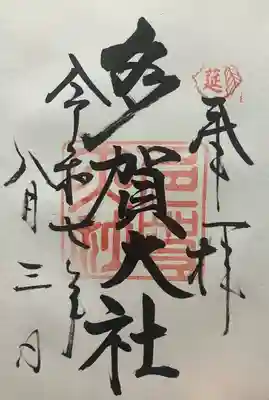 奉拝
多賀大社
令和七年
八月三日